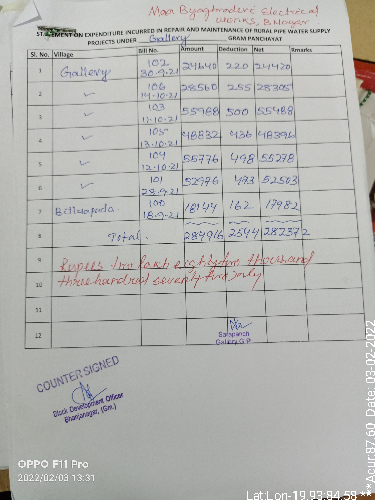 Maa Byaghradevi Electrical
works, B.Nagar
STATEMENT ON EXPENDITURE INCURRED IN REPAIR AND MAINTENANCE OF RURAL PIPE WATER SUPPLY
PROJECTS UNDER Gallery GRAM PANCHAYAT
Sl. No. Village Bill No. Amount Deduction Net Rmarks
1 Gallery 102 30.9.21 24640 220 24420
2 106 14.10.21 28560 255 28305
3 103 11.10.21 55988 500 55488
4 105 13.10.21 48832 436 48396
5 104 12.10.21 55776 498 55278
6 101 28.9.21 52976 473 52503
7 100 18.9.21 18144 162 17982
8 Total. 284916 2544 282372
9 Rupees two lakh eighty two thousand
10 three hundred seventy two only
11
12 Sarapanch
Gallery G.P
COUNTER SIGNED
Block Development Officer
Bhanjanagar, (Gm.)
OPPO F11 Pro
2022/02/03 13:31
Lat:Lon-19.93:84.58
***Acur:87.60, Date: 03-02-2022